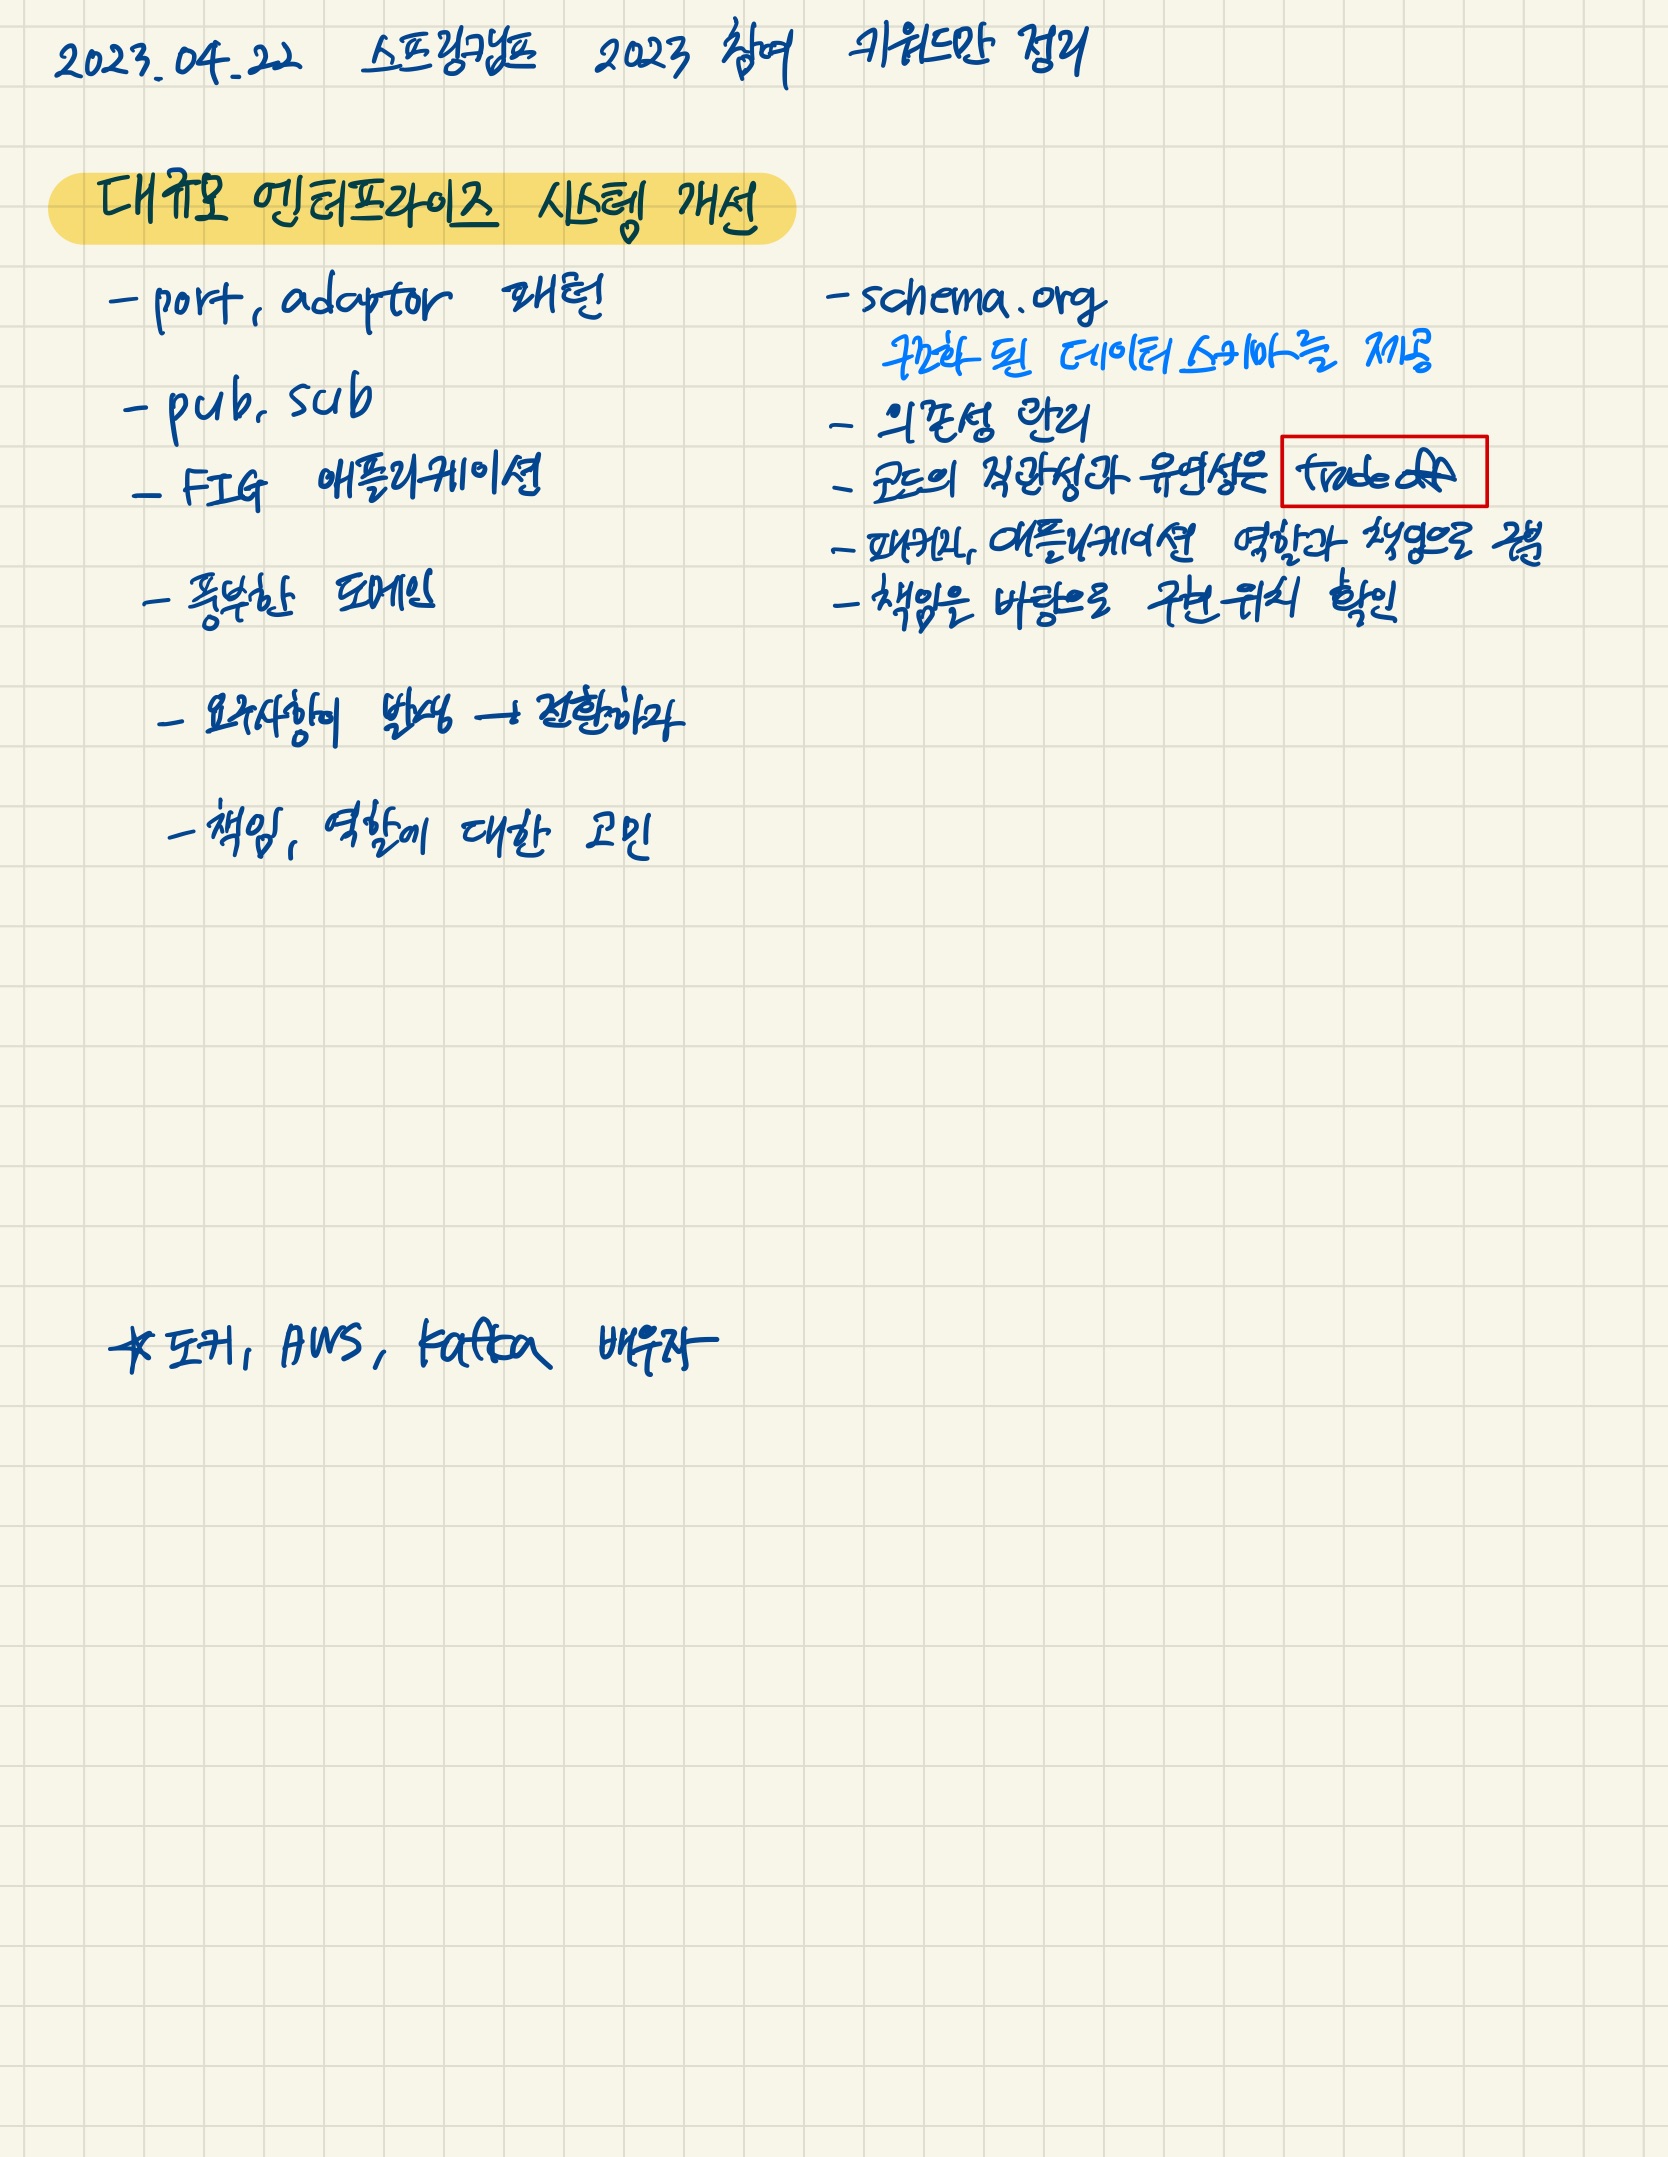 2023.04.22 스프링캠프 2023 참여 키워드만 정리
대규모 엔터프라이즈 시스템 개선
- port, adaptor 패턴
- pub, sub
- FIG 애플리케이션
- 풍부한 도메인
- 요구사항이 발생 → 전환하라
- 책임, 역할에 대한 고민
- schema.org
구조화 된 데이터 스키마를 제공
- 의존성 관리
- 코드의 직관성과 유연성은 tradeoff
- 패키지, 애플리케이션 역할과 책임으로 구분
- 책임은 바탕으로 구현 위치 확인
★ 도커, AWS, Kafka 배우자